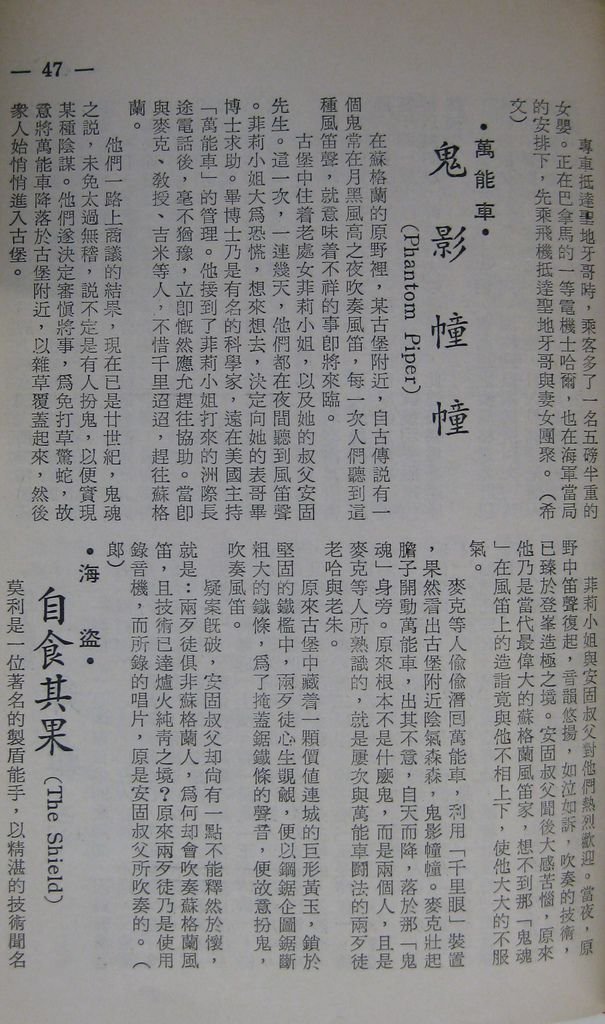 — 47 —
專車抵達聖地牙哥時，乘客多了一名五磅半重的
女嬰。正在巴拿馬的一等電機士哈爾，也在海軍當局
的安排下，先乘飛機抵達聖地牙哥與妻女團聚。（希
文）
•萬能車•
鬼影幢幢
(Phantom Piper)
在蘇格蘭的原野裡，某古堡附近，自古傳説有一
個鬼常在月黑風高之夜吹奏風笛，每一次人們聽到這
種風笛聲，就意味着不祥的事即將來臨。
古堡中住着老處女菲莉小姐，以及她的叔父安固
先生。這一次，一連幾天，他們都在夜間聽到風笛聲
。菲莉小姐大爲恐慌，想來想去，決定向她的表哥畢
博士求助。畢博士乃是有名的科學家，遠在美國主持
「萬能車」的管理。他接到了菲莉小姐打來的洲際長
途電話後，毫不猶豫，立即慨然應允趕往協助。當即
與麥克、教授、吉米等人，不惜千里迢迢，趕往蘇格
蘭。
他們一路上商議的結果，現在已是廿世紀，鬼魂
之説，未免太過無稽，説不定是有人扮鬼，以便實現
某種陰謀。他們遂決定審愼將事，爲免打草驚蛇，故
意將萬能車降落於古堡附近，以雜草覆蓋起來，然後
衆人始悄悄進入古堡。
菲莉小姐與安固叔父對他們熱烈歡迎。當夜，原
野中笛聲復起，音韻悠揚，如泣如訴，吹奏的技術，
已臻於登峯造極之境。安固叔父聞後大感苦惱，原來
他乃是當代最偉大的蘇格蘭風笛家，想不到那「鬼魂
」在風笛上的造詣竟與他不相上下，使他大大的不服
氣。
麥克等人偷偷潛囘萬能車，利用「千里眼」裝置
，果然看出古堡附近陰氣森森，鬼影幢幢。麥克壯起
膽子開動萬能車，出其不意，自天而降，落於那「鬼
魂」身旁。原來根本不是什麼鬼，而是兩個人，且是
麥克等人所熟識的，就是屢次與萬能車鬪法的兩歹徒
老哈與老朱。
原來古堡中藏着一顆價値連城的巨形黃玉，鎖於
堅固的鐵檻中，兩歹徒心生覬覦，便以鋼鋸企圖鋸斷
粗大的鐵條，爲了掩蓋鋸鐵條的聲音，便故意扮鬼，
吹奏風笛。
疑案旣破，安固叔父却尙有一點不能釋然於懷，
就是：兩歹徒俱非蘇格蘭人，爲何却會吹奏蘇格蘭風
笛，且技術已達爐火純靑之境？原來兩歹徒乃是使用
錄音機，而所錄的唱片，原是安固叔父所吹奏的。（
郎）
•海盜•
自食其果
(The Shield)
莫利是一位著名的製盾能手，以精湛的技術聞名